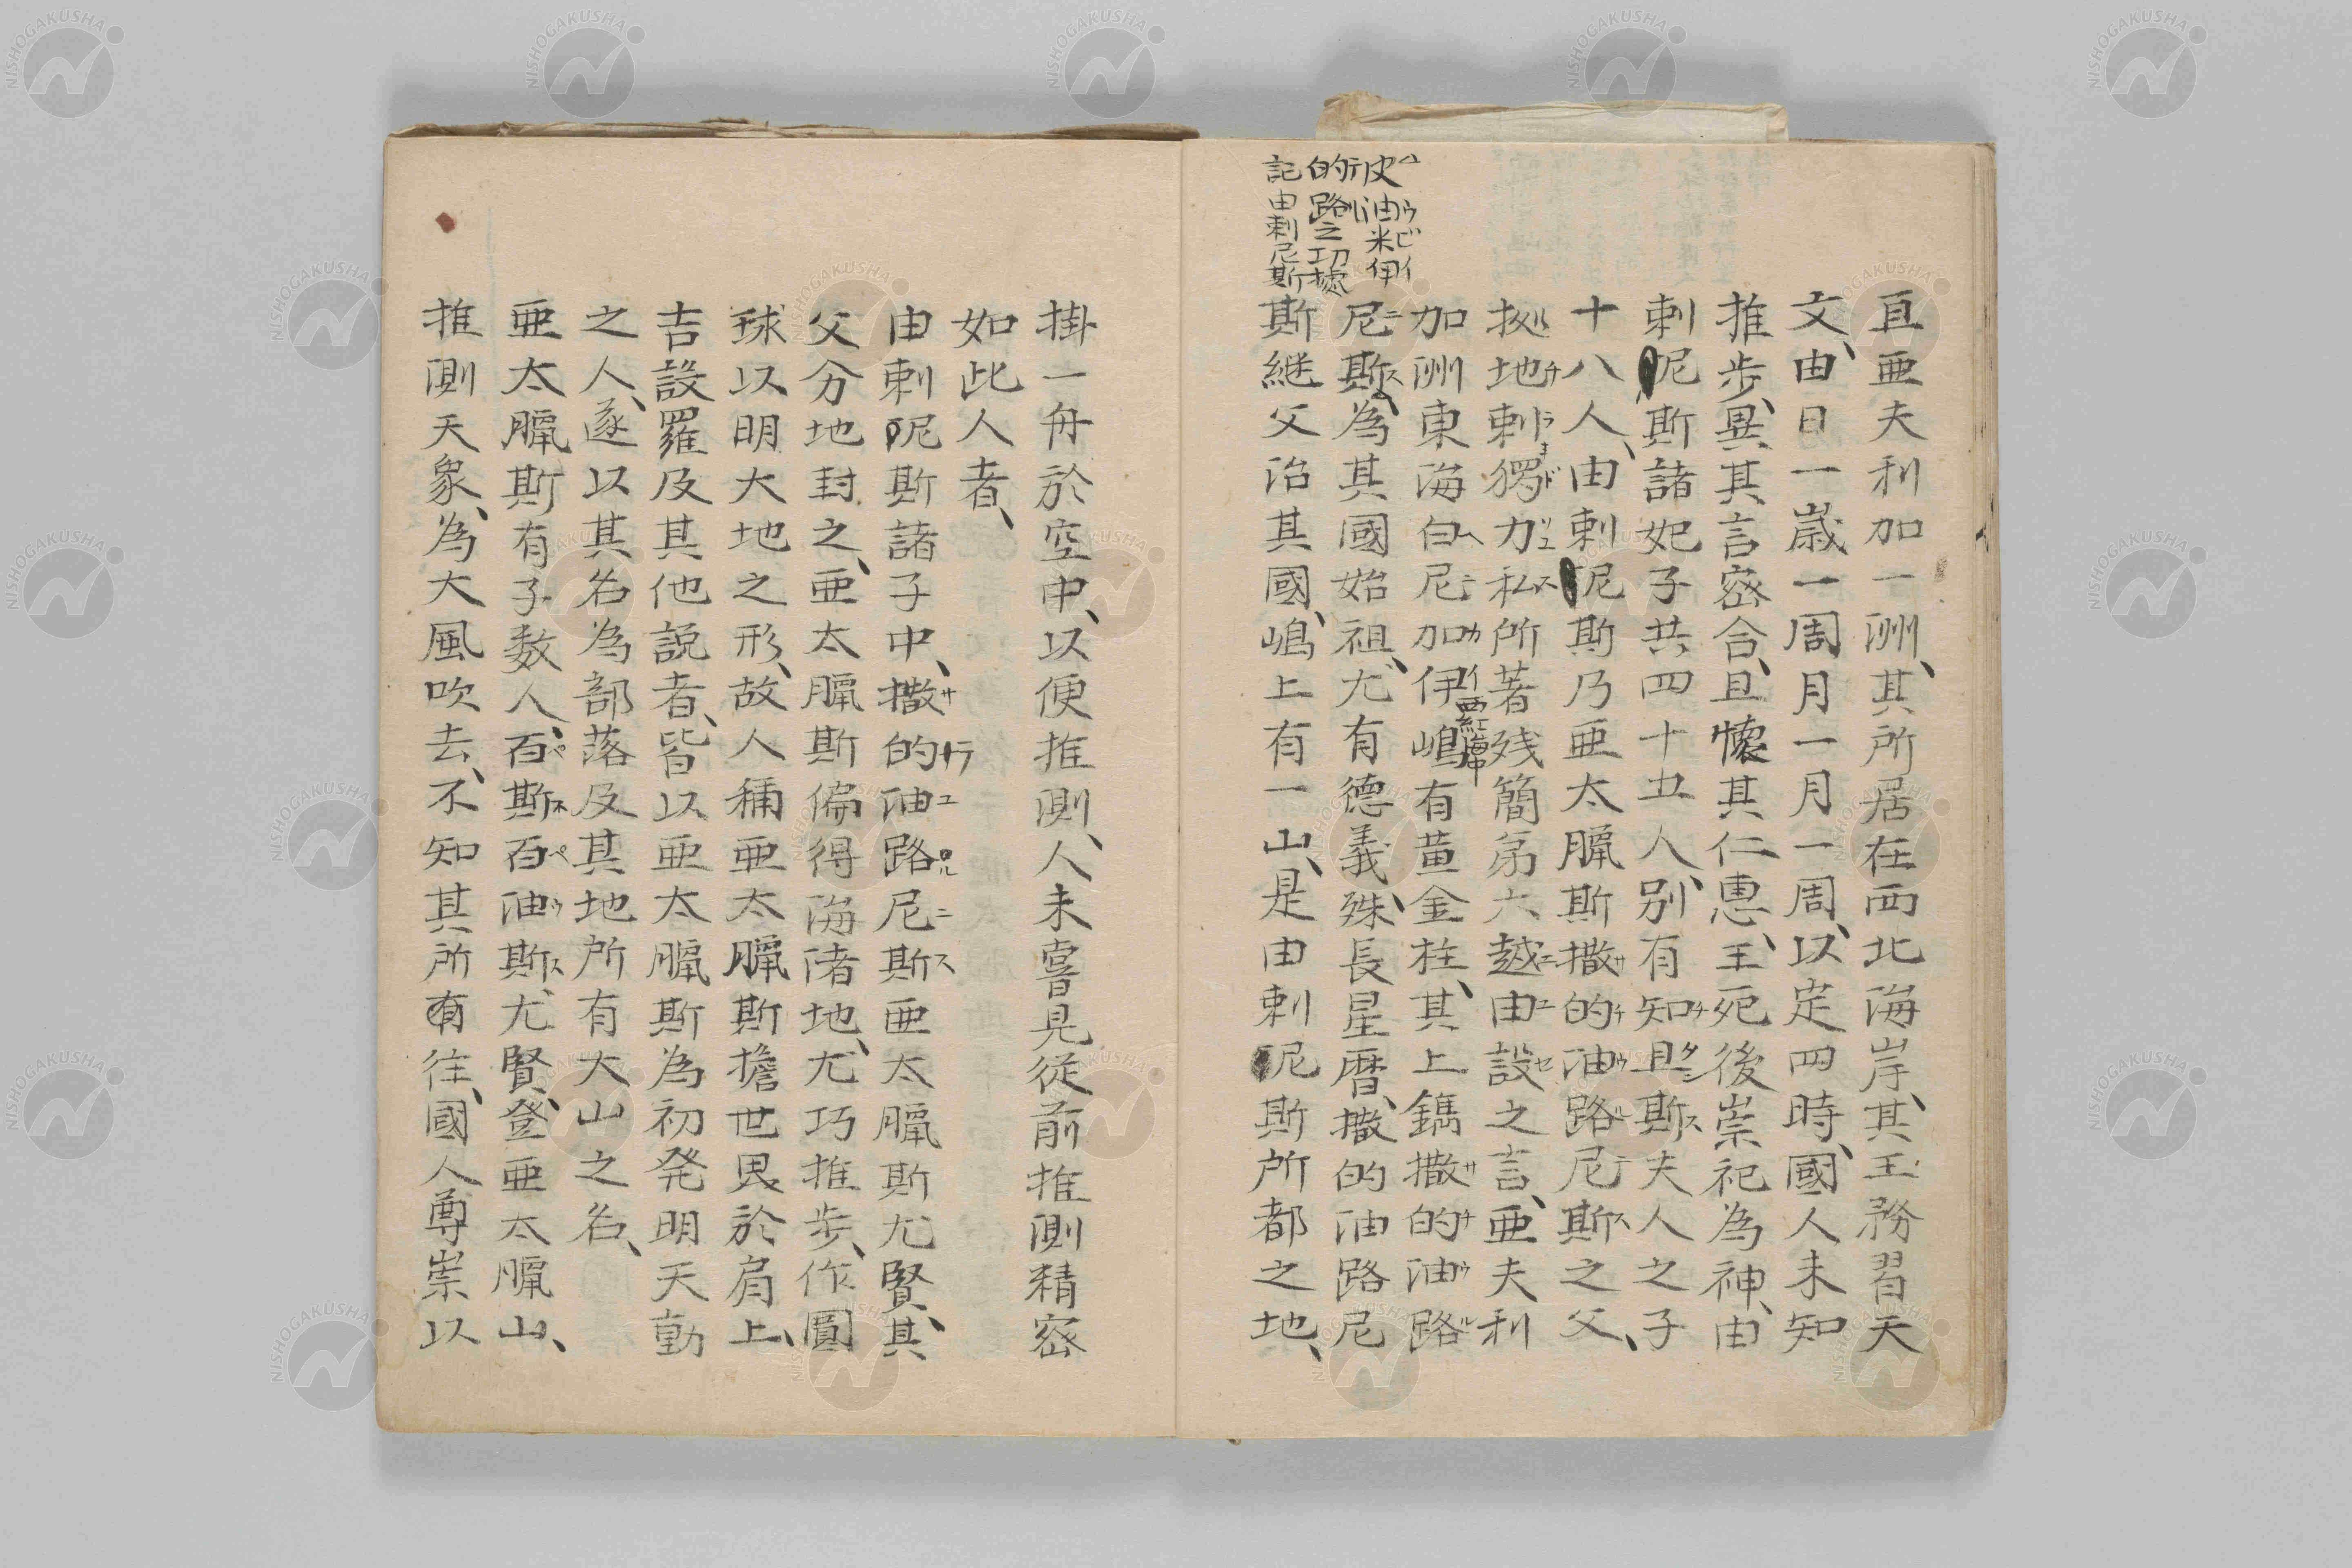 亘亜夫利加一洲、其所居在西北海岸、其王務習天
文、由日一歳一周月一月一周、以定四時、國人未知
推步、異其言密合、且懐其仁恵、王死後崇祀為神、由
剌呢斯諸妃子共四十五人、別有知旦斯夫人之子
十八人、由剌呢斯乃亜太臈斯撒的油路尼斯之父、
拠地剌獨力私所著残簡第六越由設之言、亜夫利
加洲東海白尼加伊嶋有黄金柱、其上鐫撒的油路
西紅海中
尼斯、為其國始祖、尤有德義殊、長星暦、撒的油路尼
斯継父治其國、嶋上有一山、是由剌呢斯所都之地、
皮油米伊
的路之切㨿
記由剌尼斯
掛一舟於空中、以便推測、人未嘗見従前推測精密
如此人者、
由剌呢斯諸子中、撒的油路尼斯亜太臈斯尤賢、其
父分地封之、亜太臈斯偏得海渚地、尤巧推步、作圓
球以明大地之形、故人稱亜太臈斯擔世畏於肩上、
吉設羅及其他説者、皆以亜太臈斯為初発明天動
之人、遂以其名為部落及其地所有大山之名、
亜太臈斯有子数人、百斯百油斯、尤賢、登亜太臈山、
推測天象、為大風吹去、不知其所有往、國人尊崇以
NISHOGAKUSHA